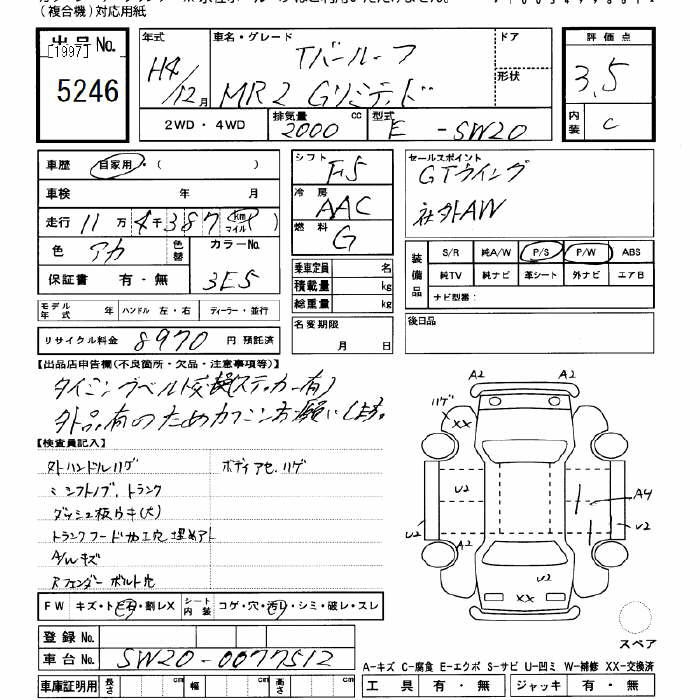 (複合機)対応用紙
出品No.
[1997]
5246
年式
H4/12月
車名・グレード
Tバールーフ
MR2 Gリミテッド
ドア
形状
2WD・4WD
排気量 2000 cc
型式 E -SW20
評価点
3.5
内装 C
車歴 自家用・( )
車検 年 月
走行 11万4千387 km マイル )
色 アカ 色替 カラーNo.
保証書 有・無 3E5
モデル年式 年 ハンドル 左・右 ディーラー・並行
リサイクル料金 8970 円 預託済
シフト F5
冷房 AAC
燃料 G
乗車定員 名
積載量 kg
総重量 kg
名変期限
月 日
セールスポイント
GTウイング
社外AW
装備品
S/R 純A/W P/S P/W ABS
純TV 純ナビ 革シート 外ナビ エアB
ナビ型番:
後日品
【出品店申告欄(不良箇所・欠品・注意事項等)】
タイミングベルト交換(ステッカー有)
外品有のためカクニンお願いします。
【検査員記入】
外ハンドルハゲ ボディアセ、ハゲ
シフトノブ、トランク
ダッシュ板ウキ(大)
トランクフード加工穴埋めアト
A/Wキズ
Rフェンダー ボルト化
FW キズ・トビ石・割レX シート内装 コゲ・穴・汚レ・シミ・破レ・スレ
登録No.
車台No. SW20-0077512
車庫証明用 長さ cm 幅 cm 高さ cm
A2 A2
ハゲ
XX
U2
A4
U2
U2
A2
U2
XX
スペア
A-キズ C-腐食 E-エクボ S-サビ U-凹ミ W-補修 XX-交換済
工具 有・無 ジャッキ 有・無